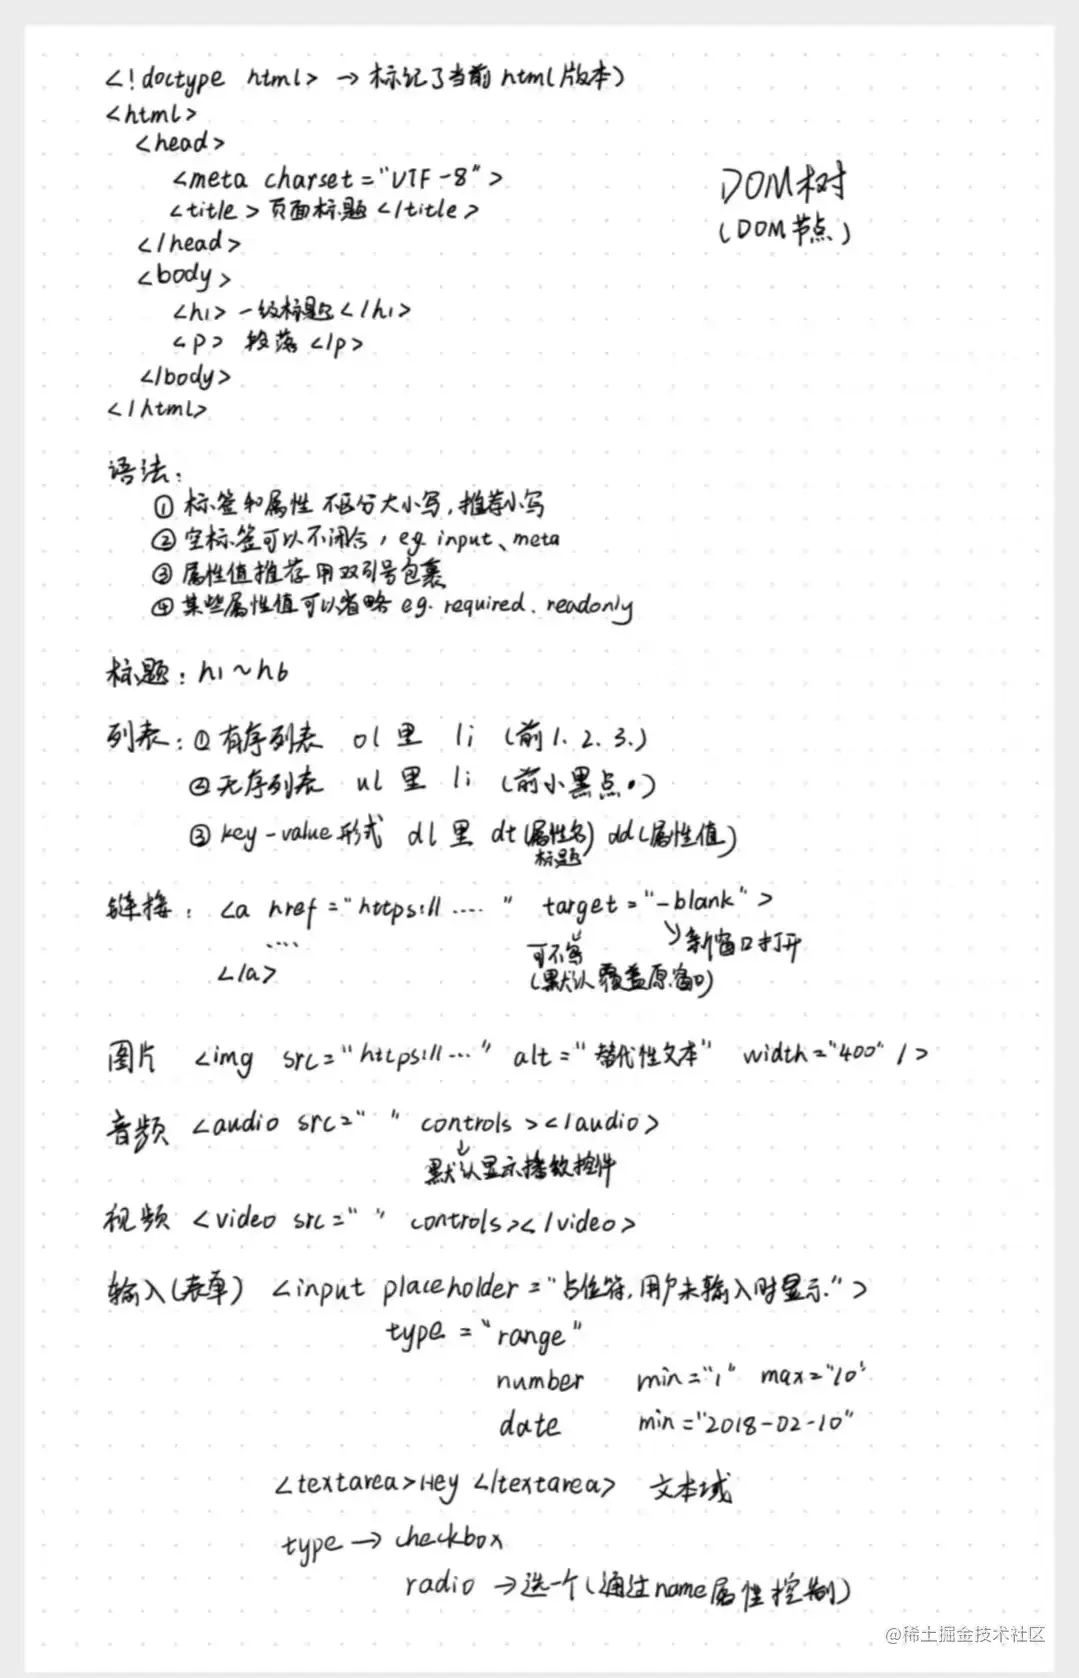 <!doctype html> → 标记了当前html版本)
<html>
<head>
<meta charset="UTF-8">
<title>页面标题</title>
</head>
<body>
<h1>一级标题</h1>
<p> 段落</p>
</body>
</html>
DOM树
(DOM节点)
语法:
① 标签和属性 不区分大小写,推荐小写
② 空标签可以不闭合, eg. input、meta
③ 属性值推荐用双引号包裹
④ 某些属性值可以省略 eg. required、readonly
标题: h1~h6
列表: ① 有序列表 ol 里 li (前1. 2. 3.)
② 无序列表 ul 里 li (前小黑点•)
③ key-value形式 dl 里 dt(属性名) dd(属性值)
标题
链接: <a href="https:// ...." target="-blank">
.... 可不写 新窗口打开
</a> (默认覆盖原窗口)
图片 <img src="https://..." alt="替代性文本" width="400" />
音频 <audio src=" " controls></audio>
默认显示播放控件
视频 <video src=" " controls></video>
输入(表单) <input placeholder="占位符,用户未输入时显示.">
type="range"
number min="1" max="10"
date min="2018-02-10"
<textarea>Hey</textarea> 文本域
type → checkbox
radio → 选一个(通过name属性控制)
@稀土掘金技术社区